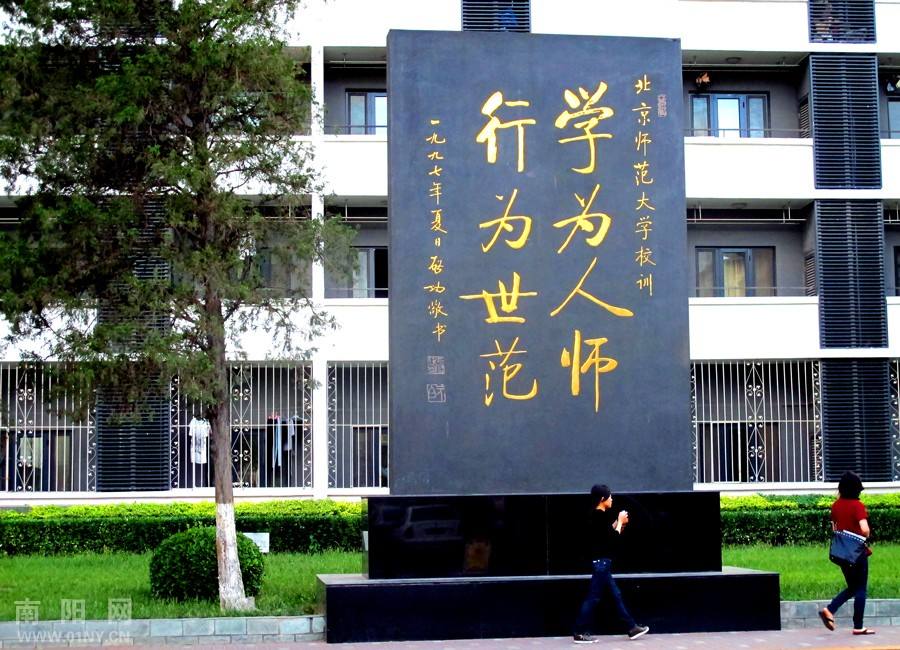 北京师范大学校训
学为人师
行为世范
一九九七年夏日启功敬书
南阳网
WWW.01NY.CN